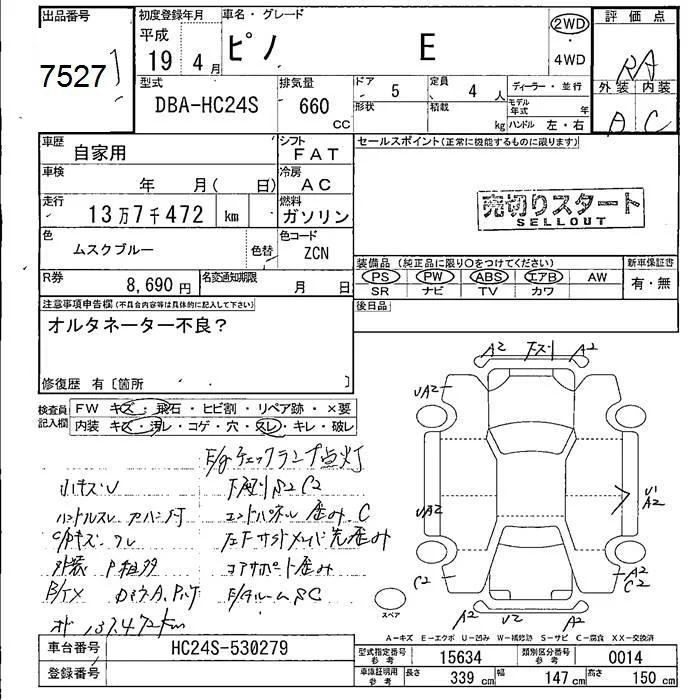 出品番号
7527
初度登録年月
平成
19 4月
車名・グレード
ピノ E
2WD
4WD
評価点
RA
外装 内装
A C
型式
DBA-HC24S
排気量
660
CC
ドア 5
形状
定員 4 人
積載 kg
ディーラー・並行
モデル年式 年
ハンドル 左・右
車歴
自家用
シフト
FAT
車検
年 月( 日)
冷房
AC
走行
13万7千472 km
燃料
ガソリン
色
ムスクブルー
色替
色コード
ZCN
R券
8,690円
名変通知期限
月 日
セールスポイント(正常に機能するものに限ります)
売切りスタート
SELLOUT
装備品(純正品に限り○をつけてください)
PS PW ABS エアB AW
SR ナビ TV カワ
新車保証書
有・無
後日品
注意事項申告欄(不具合内容等は具体的に記入して下さい)
オルタネーター不良?
修復歴 有〔箇所 〕
検査員記入欄
FW キズ・飛石・ヒビ割・リペア跡・×要
内装 キズ・汚レ・コゲ・穴・スレ・キレ・破レ
E/gチェックランプ点灯
小キズU
下廻りS2 C2
エンドパネル歪みC
コアサポート歪み
E/gルームSC
137,472km
A2 下スリ A2
UA2
UA2
U1
A2
C2
A2
C2
A2 U2 A2
スペア
A−キズ E−エクボ U−凹み W−補修跡 S−サビ C−腐食 XX−交換済
車台番号
HC24S-530279
登録番号
型式指定番号
参考
15634
類別区分番号
参考
0014
車庫証明用
参考
長さ 339 cm 幅 147 cm 高さ 150 cm